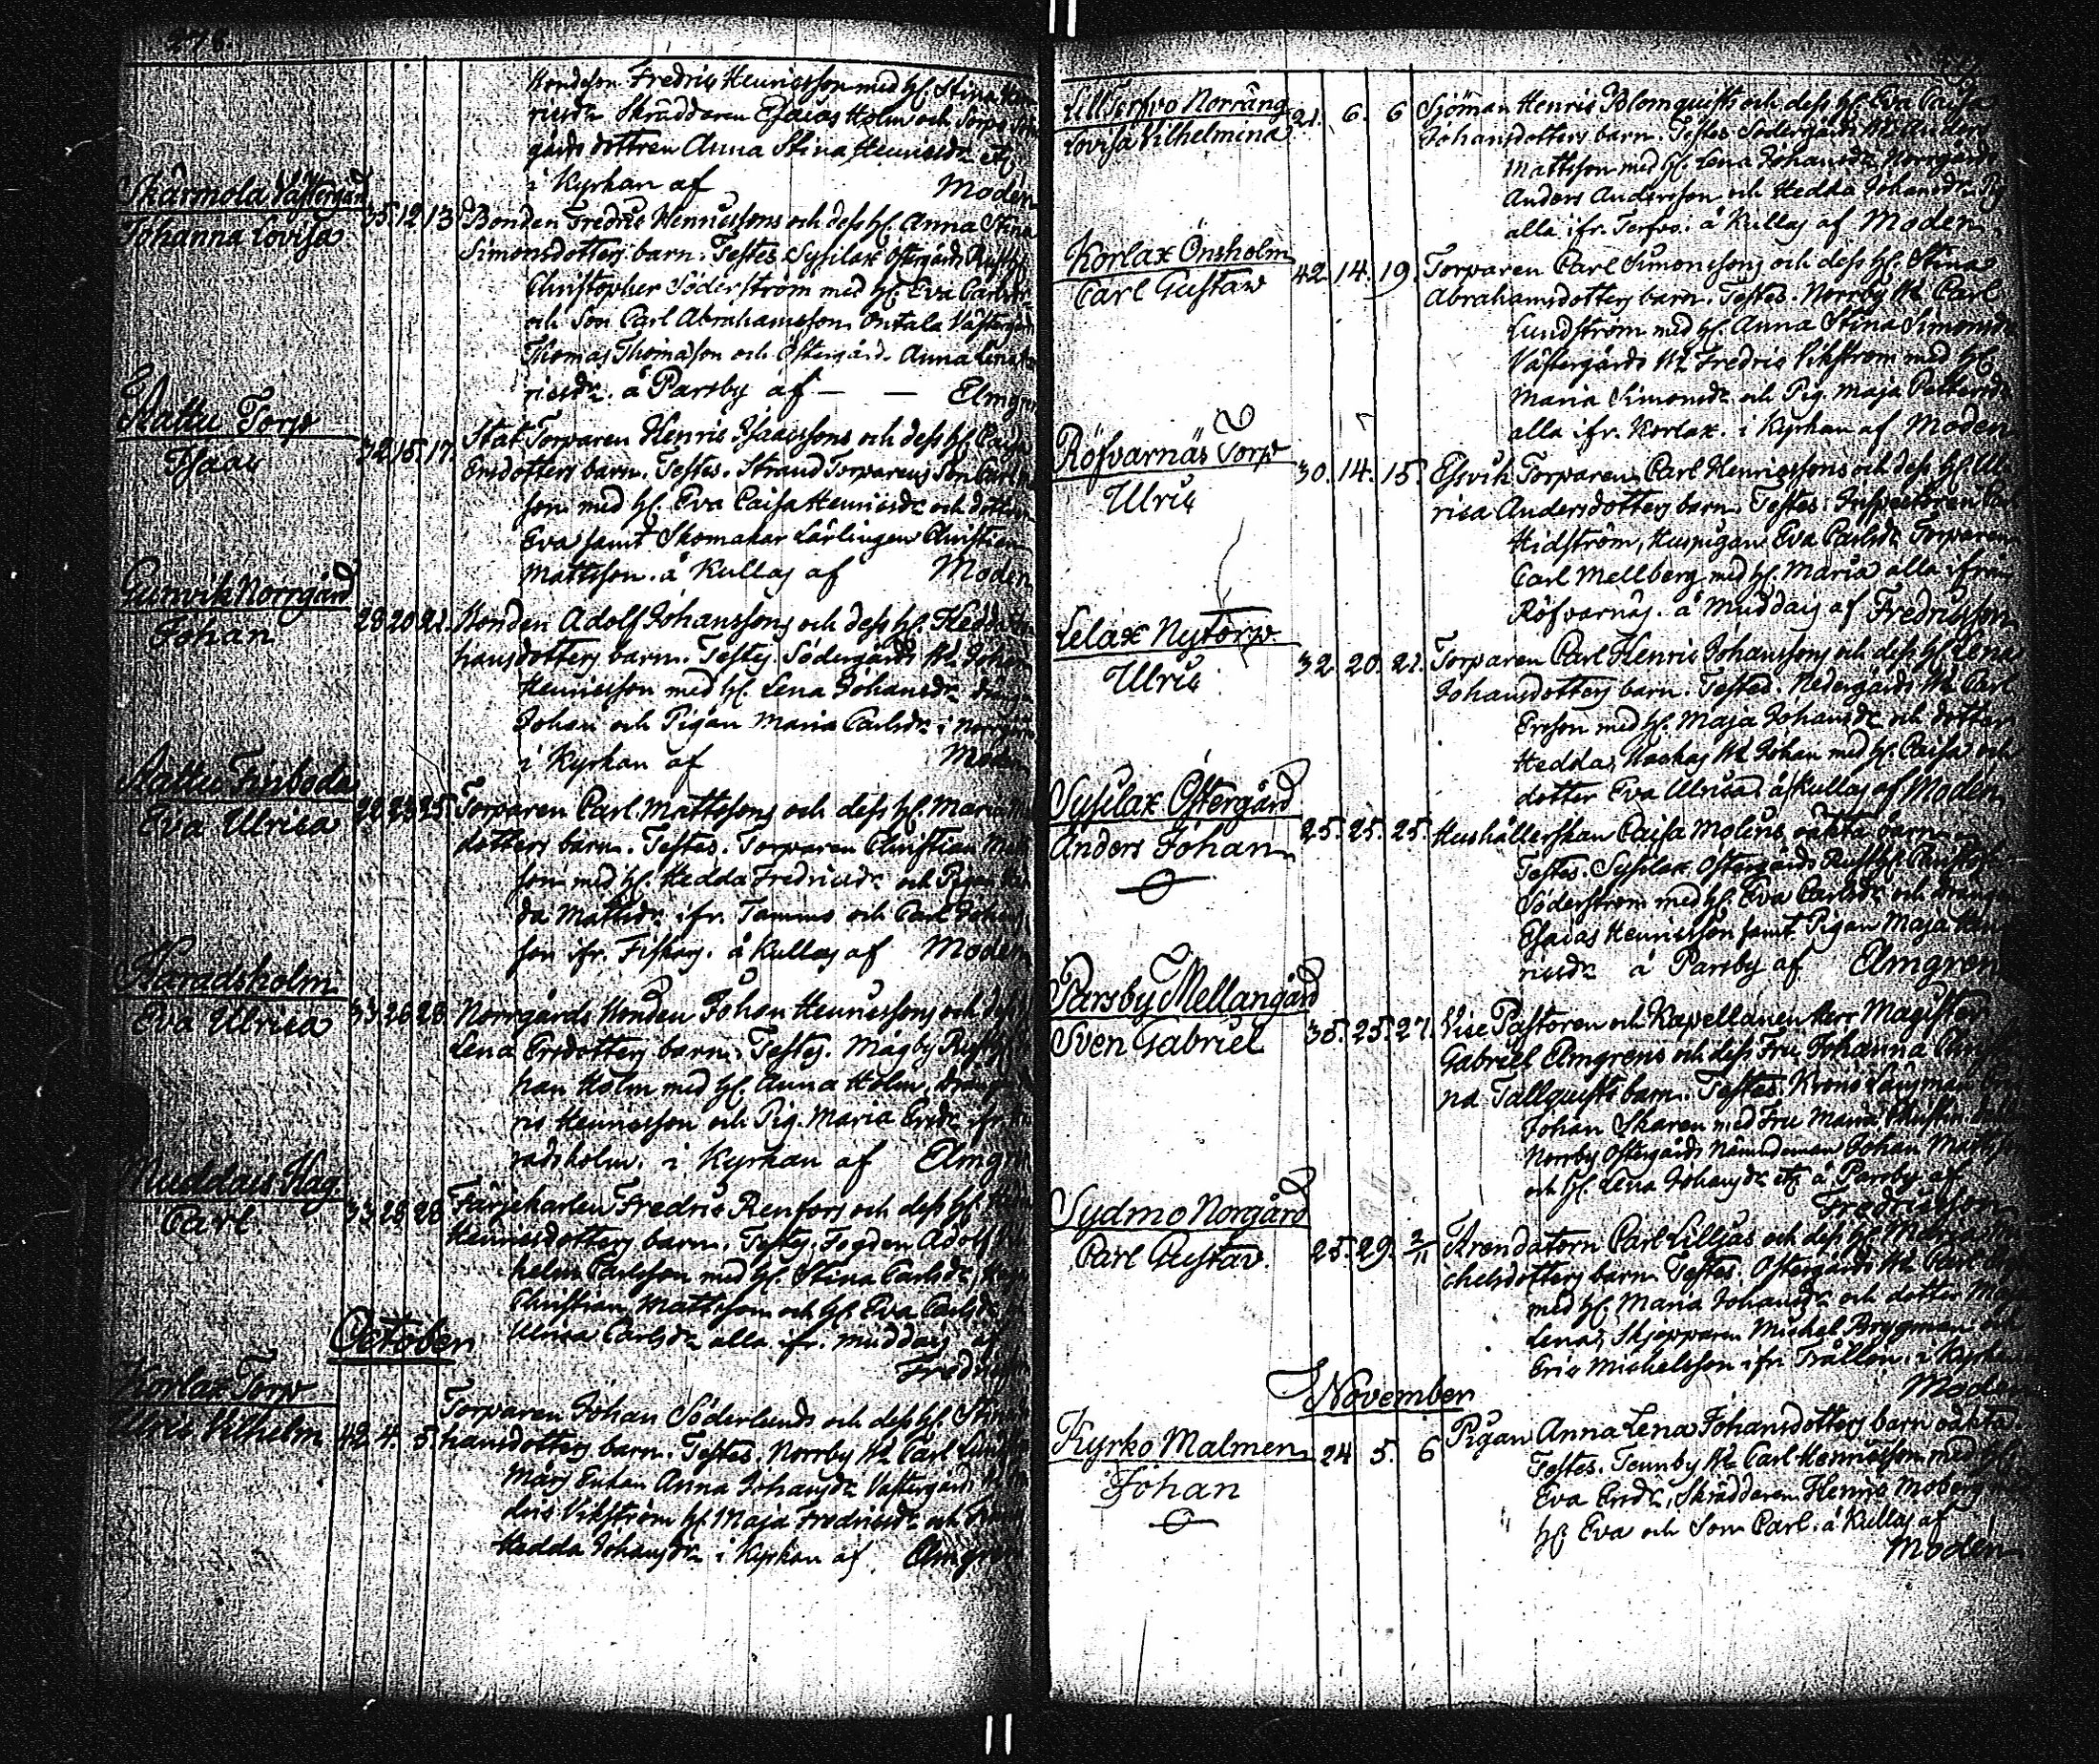 276.
Bondeson Fredric Henricsson med hf. Stina Hen
ricsdr Skräddaren Esaias Holm och Torps
gårds dottren Anna Stina Henricsdr etc
i Kyrkan af Modén
Skärmola Västergård
Johanna Lovisa 35 12 13
Bonden Fredric Henricssons och dess hf. Anna Stina
Simonsdotters barn. Testes. Sysilax Östergårds Rusth.
Christopher Söderström med hf. Eva Carlsdr
och Son Carl Abrahamsson Ontala Västergårds
Thomas Thomasson och Östergårds Anna Lena
ricsdr. å Parsby af — — Elmgren
Rattu Torp
Isaac 32 15 17.
Stat Torparen Henric Isaacssons och dess hf. Caisa
Ersdotters barn. Testes. Strand Torparens Son Carl
son med hf. Eva Caisa Henricsdr och dotter
Eva samt Skomakar Lärlingen Christian
Mattsson. å Kullas af Modén
Gunvik Norrgård
Johan 28 20 21.
Bonden Adolf Johanssons och dess hf. Hedda
hansdotters barn. Testes. Södergårds Bd. Johan
Henricsson med hf. Lena Johansdr dräng
Johan och Pigan Maria Carlsdr i Norrgård
i Kyrkan af Modén
Rattu Finboda
Eva Ulrica 28 23 25
Torparen Carl Mattssons och dess hf. Maria
dotters barn. Testes. Torparen Christian Matts
son med hf. Hedda Fredricsdr och Pigan Hed
da Mattsdr ifr. Tammo och Carl Johans
son ifr. Fiskars. å Kullas af Modén
Haradsholm
Eva Ulrica 33 26 28
Norrgårds Bonden Johan Henricssons och dess
Lena Ersdotters barn. Testes. Mågby Rusth.
han Holm med hf. Anna Holm, dräng
ric Henricsson och Pig. Maria Ersdr ifr
radsholm. i Kyrkan af Elmgren
Muddais Hag
Carl 33 25 28
Färjekarlen Fredric Renfors och dess hf.
Henricsdotters barn. Testes. Fogden Adolf
helm Carlsson med hf. Stina Carlsdr
Christian Mattsson och hf. Eva Carlsdr
Ulrica Carlsdr alla ifr. Muddais af
Fredricsson
October
Korlax Torp
Ulric Vilhelm 42 4. 5.
Torparen Johan Söderlunds och dess hf. Stina
hansdotters barn. Testes. Norrby Bd. Carl Lund
Mårs Enkan Anna Johansdr Västergårds
dric Vikström hf. Maja Fredricsdr och
Hedda Johansdr i Kyrkan af Elmgren
Lill Terfvo Norräng
Lovisa Vilhelmina 21. 6. 6
Sjöman Henric Blomquists och dess hf. Eva Caisa
Johansdotters barn. Testes Södergårds Bd. Anders
Mattsson med hf. Lena Johansdr Norrgårds
Anders Andersson och Hedda Johansdr Pig
alla ifr. Terfvo. å Kullas af Modén.
Korlax Önsholm
Carl Gustav 42. 14. 19.
Torparen Carl Simonssons och dess hf. Stina
Abrahamsdotters barn. Testes. Norrby Bd. Carl
Lundström med hf. Anna Stina Simonsdr
Västergårds Bd. Fredric Vikström med hf.
Maria Simonsdr och Pig. Maja Pettersdr
alla ifr. Korlax. i Kyrkan af Modén
Röfvarnäs Torp
Ulric 30. 14. 15.
Essvik Torparen Carl Henricssons och dess hf. Ul
rica Andersdotters barn. Testes. Inspectoren Carl
Hidström, Huspigan Eva Carlsdr Torparen
Carl Mellberg med hf. Maria alla ifrån
Röfvarnäs. å Muddais af Fredricsson
Lelax Nytorp
Ulric 32. 20. 21.
Torparen Carl Henric Johanssons och dess hf. Lena
Johansdotters barn. Testes. Nedergårds Bd. Carl
Ersson med hf. Maja Johansdr och dotter
Hedda, Backas Bd. Johan med hf. Caisa och
dotter Eva Ulrica. å Kullas af Modén
Sysilax Östergård
Anders Johan 25. 25. 25.
Hushållerskan Caisa Molins oäkta barn.
Testes. Sysilax Östergårds Rusth. Christoph
Söderström med hf. Eva Carlsdr och dräng
Esaias Henricsson samt Pigan Maja Hen
ricsdr å Parsby af Elmgren
Parsby Mellangård
Sven Gabriel 35. 25. 27.
Vice Pastoren och Kapellanen Herr Magister
Gabriel Elmgrens och dess Fru Johanna Christi
na Tallquists barn. Testes. Krono Länsman
Johan Skarén med Fru Maria Christina
Norrby Östergårds Nämndeman Johan Matts
och hf. Lena Johansdr etc å Parsby af
Fredricsson
Sydmo Norgård
Carl Gustav. 25. 29. 2/11
Arendatorn Carl Lilljas och dess hf. Maria Mi
chelsdotters barn Testes. Östergårds Bd. Carl
med hf. Maria Johansdr och dotter Maja
Lena, Skjepparen Michel Bryggman och
Eric Michelsson ifr. Trållön. i Kyrkan
Modén
November
Kyrko Malmen
Johan 24 5. 6
Pigan Anna Lena Johansdotters barn oäkta.
Testes. Tennby Bd. Carl Henricsson med hf.
Eva Ersdr, Skräddaren Henric Moberg
hf. Eva och Son Carl. å Kullas af
Modén